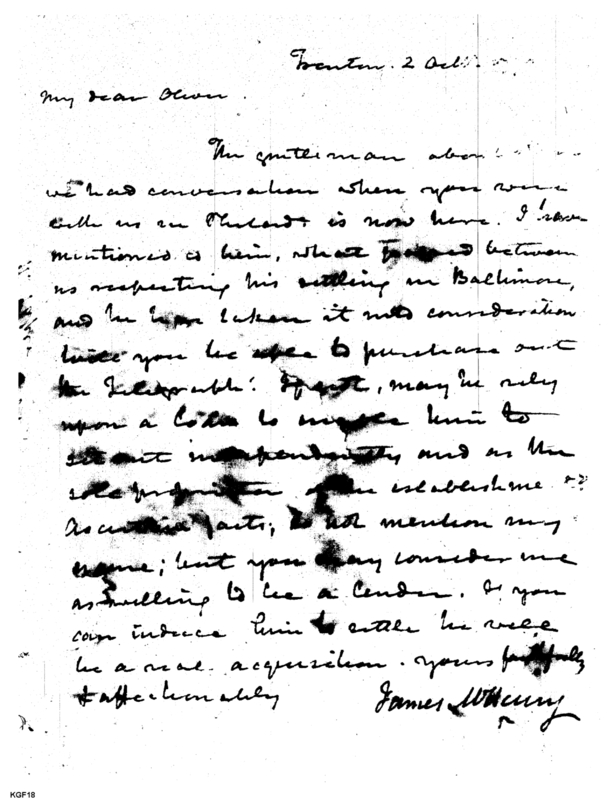 Trenton. 2 Oct.
My dear Oliver.
The gentleman about
we had conversation when you were
with us in Philad^a is now here. I have
mentioned to him, what passed between
us respecting his settling in Baltimore,
and he has taken it into consideration
will you be able to purchase out
the Telegraphe? If not, may he rely
upon a Loan to enable him to
set out independently and as the
sole proprietor of an establishme
Ascertain facts; do not mention my
name; but you may consider me
as willing to be a lender. If you
can induce him to settle he will
be a real acquisition. yours faithfully
& affectionately
James McHenry
KGF18